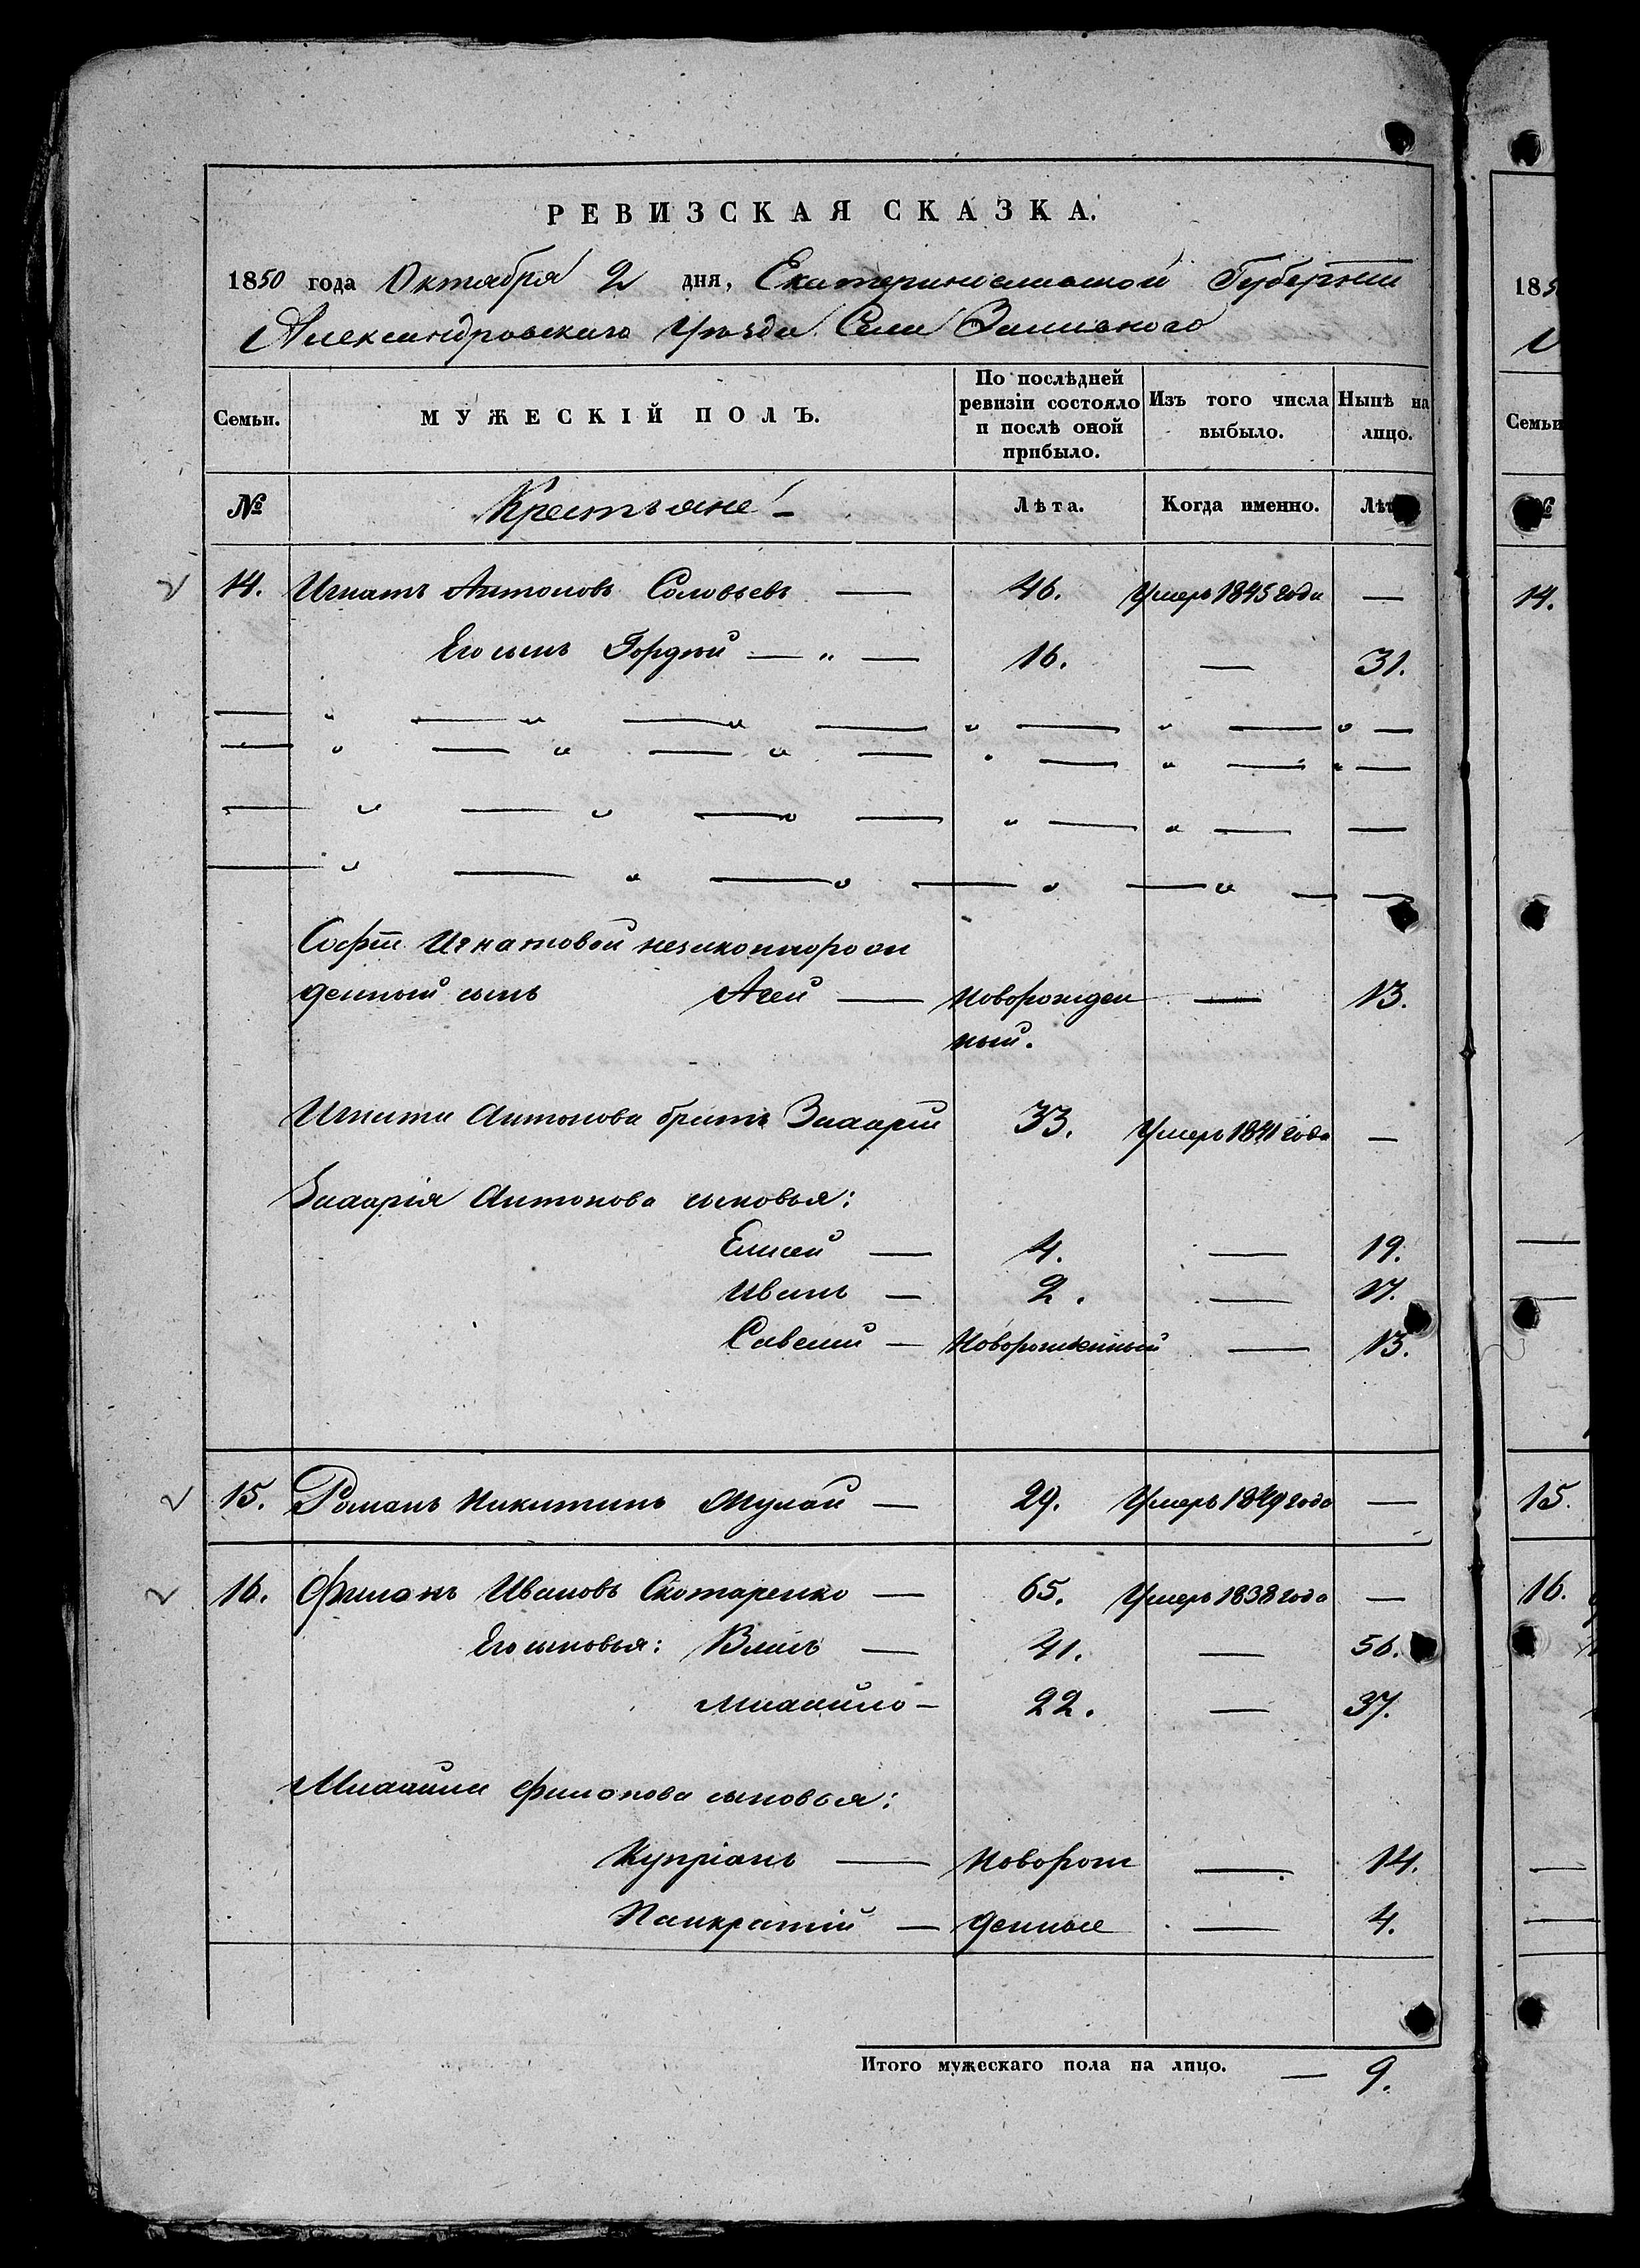 РЕВИЗСКАЯ СКАЗКА.
1850 года Октября 2 дня, Екатеринославской Губерніи
Александровскаго Уѣзда Села Заливнаго
Семьи. МУЖЕСКІЙ ПОЛЪ. По послѣдней ревизіи состояло и послѣ оной прибыло. Изъ того числа выбыло. Нынѣ на лицо.
№ Крестьяне Лѣта. Когда именно. Лѣт
14. Игнатъ Антоновъ Соловьевъ — 46. Умеръ 1845 года —
Его сынъ Гордѣй — " — 16. — 31.
Софіи Игнатовой незаконнорож
денный сынъ Агей — Новорожден — 13.
ный.
Игната Антонова братъ Захарій 33. Умеръ 1841 года —
Захарія Антонова сыновья:
Елисей — 4. — 19.
Иванъ — 2. — 17.
Савелий — Новорожденный — 13.
15. Романъ Никитинъ — 29. Умеръ 1849 года —
16. Филонъ Ивановъ Скотаренко — 65. Умеръ 1838 года —
Его сыновья: Власъ — 41. — 56.
Михайло — 22. — 37.
Михайла Филонова сыновья:
Купріанъ — Новорож — 14.
Панкратій — денные — 4.
Итого мужескаго пола на лицо. — 9.
185
Семьи
№
14.
15.
16.